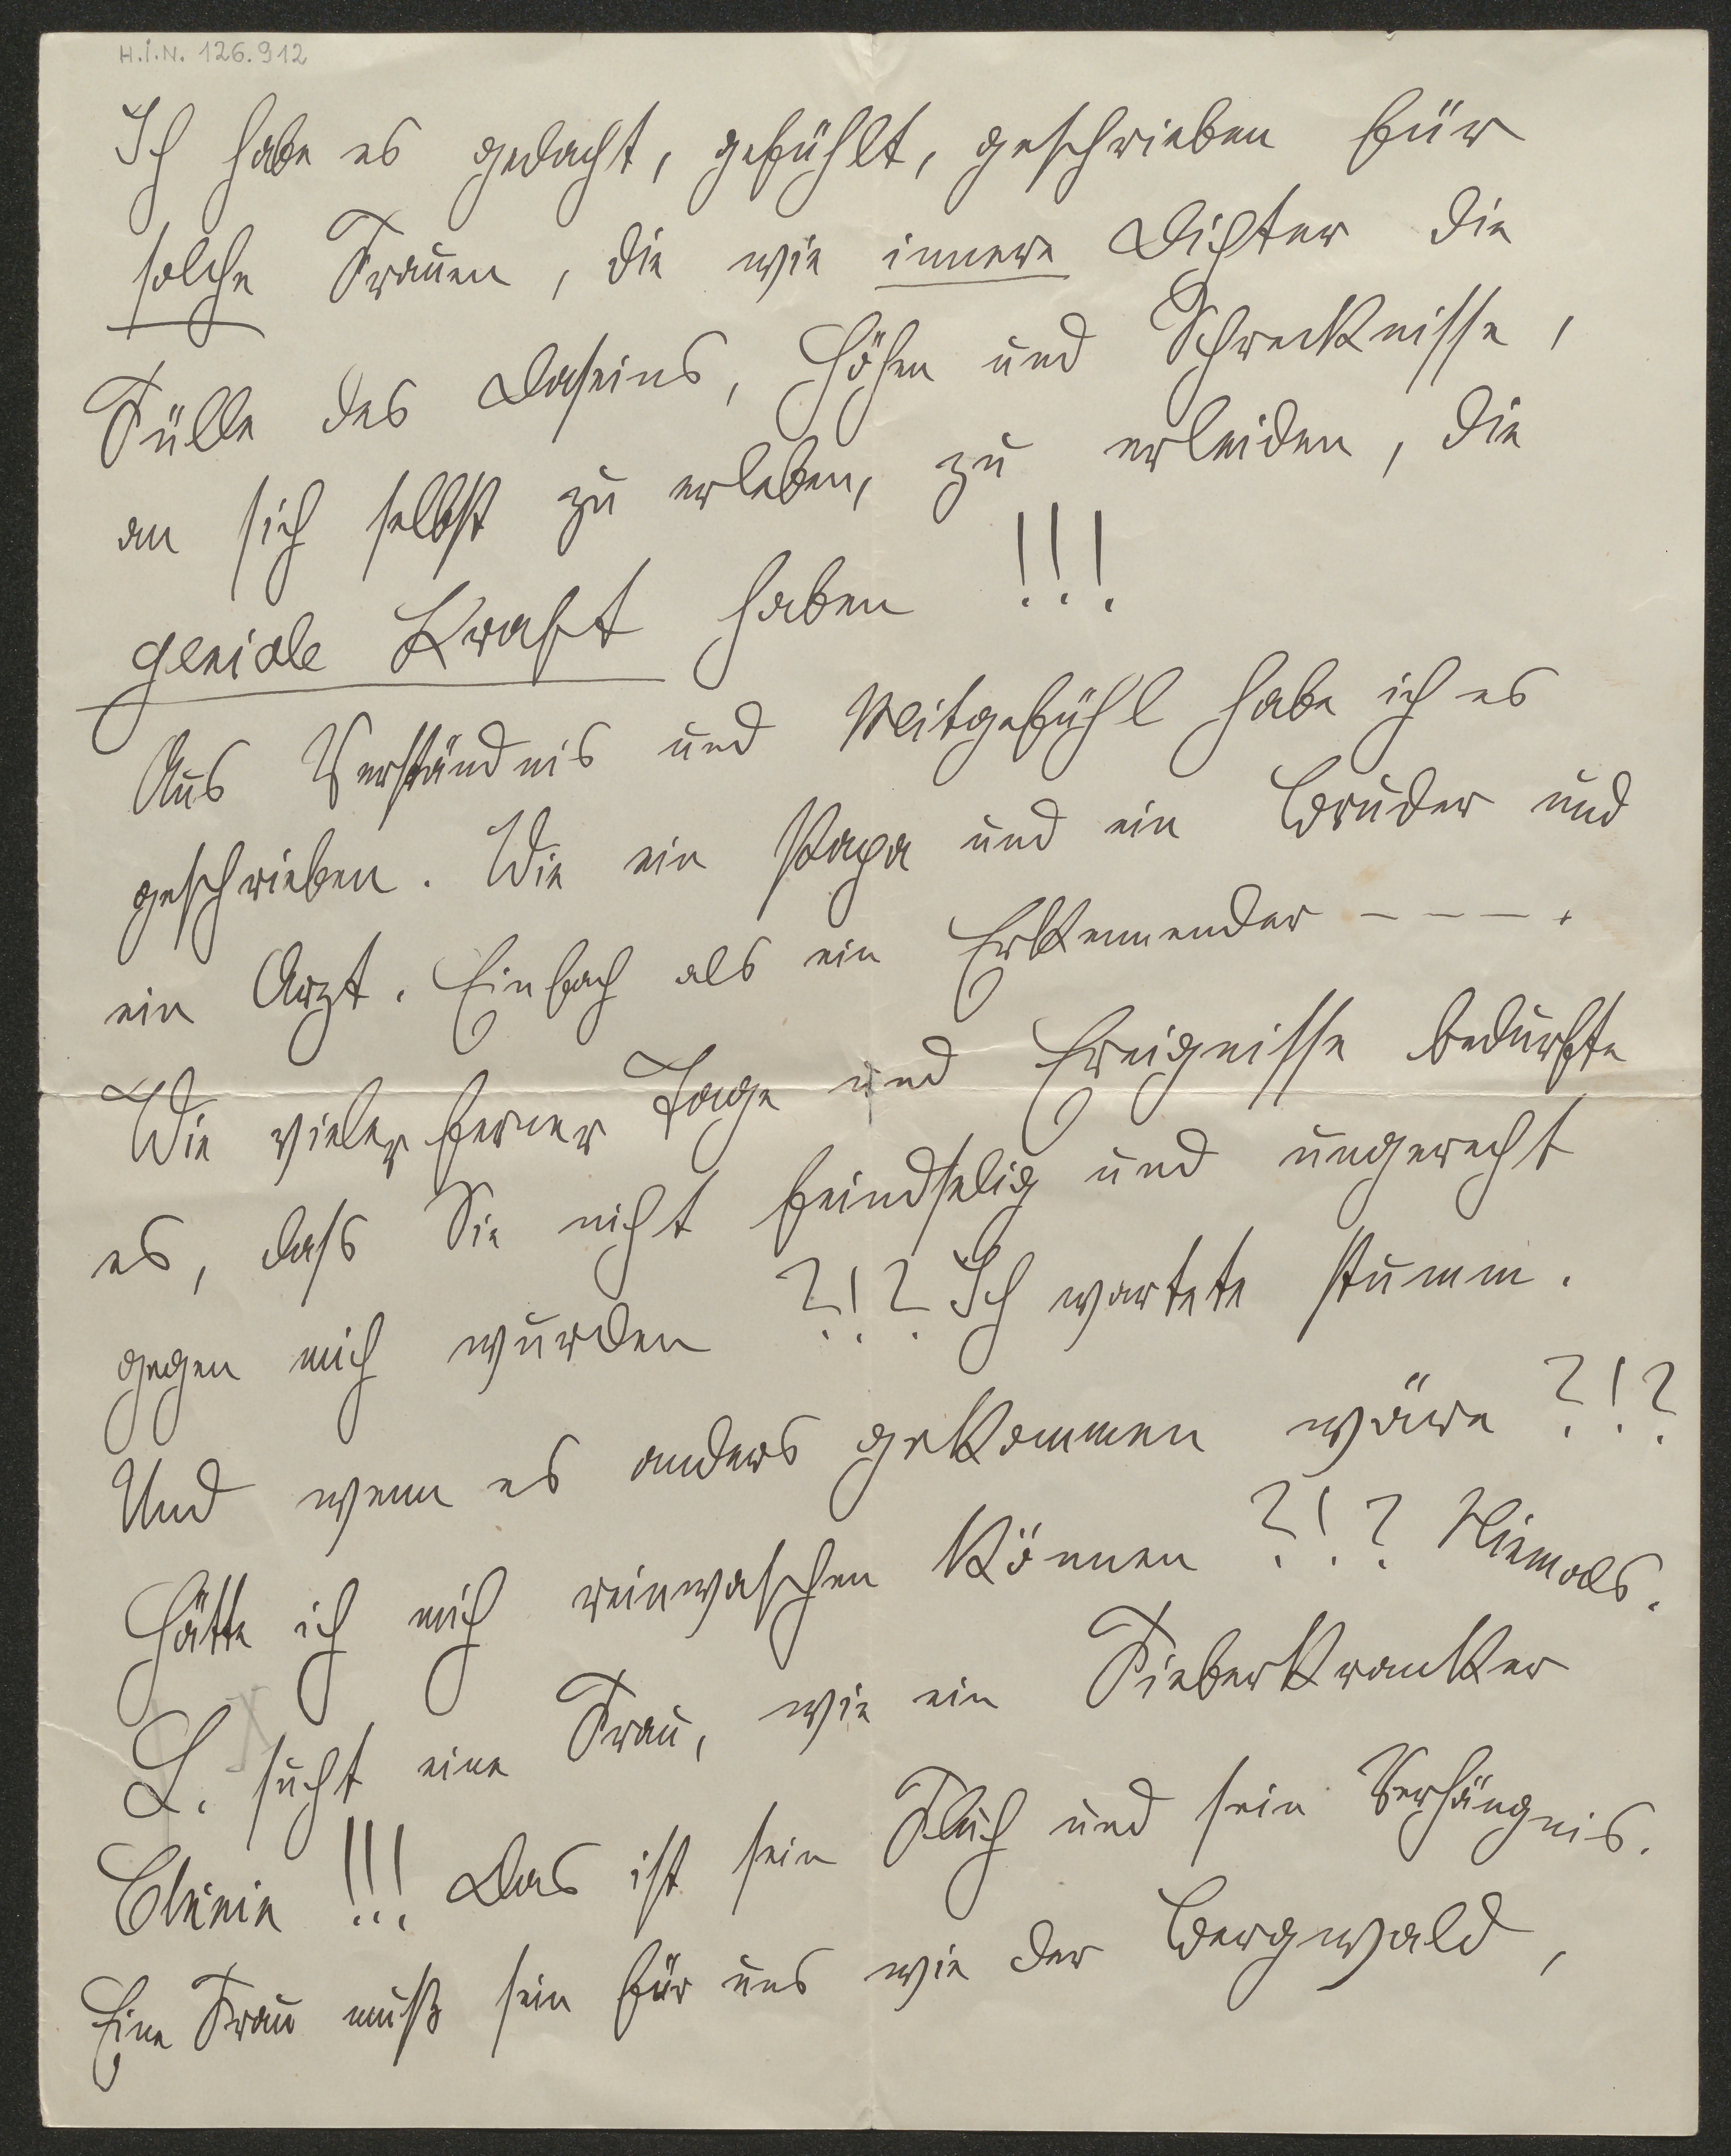 H.I.N. 126.912
Ich habe es gedacht, gefühlt, geschrieben für
solche Frauen, die wie innere Dichter die
Fülle des Daseins, Höhen und Schrecknisse,
an sich selbst zu erleben, zu erleiden, die
geniale Kraft haben !!!
Aus Verständnis und Mitgefühl habe ich es
geschrieben. Wie ein Papa und ein Bruder und
ein Arzt. Einfach als ein Erkennender – – – .
Wie vieler ferner Tage und Ereignisse bedurfte
es, dass Sie nicht feindselig und ungerecht
gegen mich wurden ?!? Ich wartete stumm.
Und wenn es anders gekommen wäre ?!?
Hätte ich mich reinwaschen können ?!? Niemals.
L. sucht eine Frau, wie ein Fieberkranker
Chinin !!! Das ist sein Fluch und sein Verhängnis.
Eine Frau muß sein für uns wie der Bergwald,